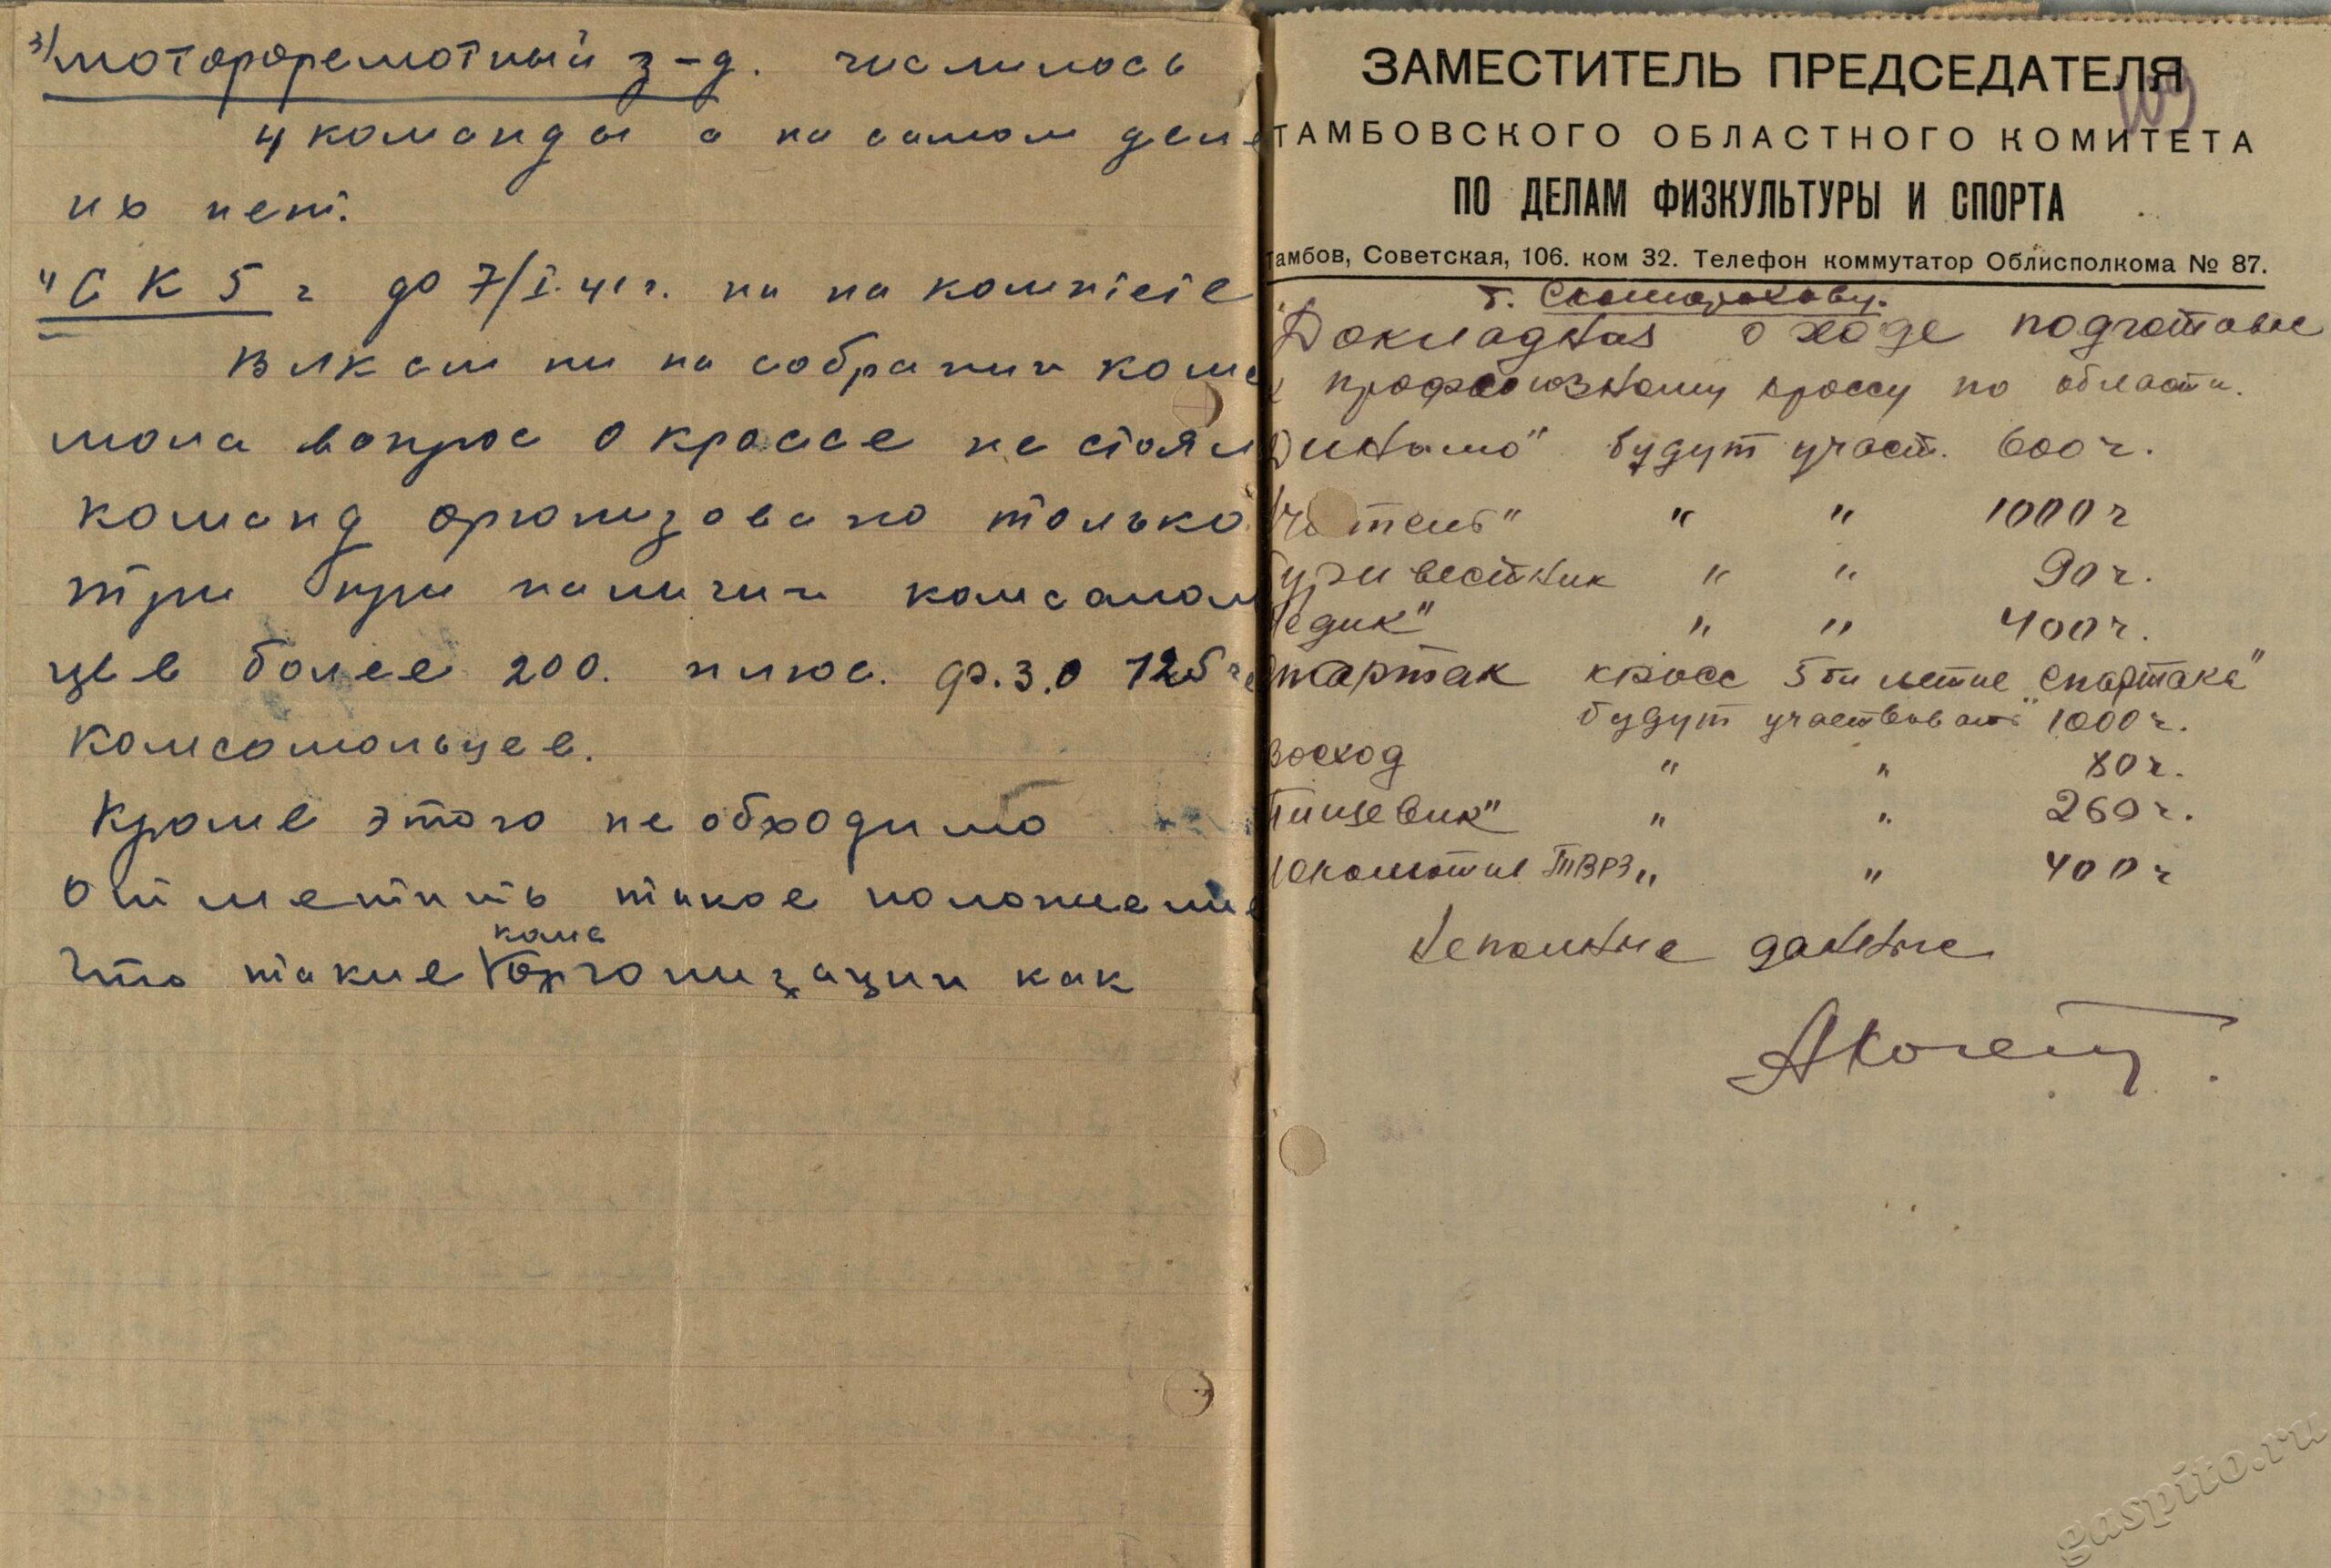 3) моторо ремотный з-д. числилось
4 команды а на самом деле
их нет.
4 С К 5 г до 7/I.41г. ни на комитете
ВЛКСМ ни на собрании комсо
мола вопрос о кроссе не стоял
команд организовано только
три при наличии комсамоль
цев более 200. плюс. ф.з.о 125
комсомольцев.
Кроме этого необходимо
отметить такое положение
комс
что такие организации как
ЗАМЕСТИТЕЛЬ ПРЕДСЕДАТЕЛЯ
109
ТАМБОВСКОГО ОБЛАСТНОГО КОМИТЕТА
ПО ДЕЛАМ ФИЗКУЛЬТУРЫ И СПОРТА
Тамбов, Советская, 106. ком 32. Телефон коммутатор Облисполкома № 87.
т. Скоморохову.
Докладная о ходе подготовке
к профсоюзному кроссу по области.
Динамо" будут участ. 600ч.
Учитель" " " 1000ч
Буревестник " " 90ч.
Медик" " " 400ч.
Спартак кросс 5ти летие „Спартака"
будут участвовать 1000ч.
Восход " " 80ч.
Пищевик" " " 260ч.
Локомотив ТВРЗ " " 400ч
Неполные данные
gaspito.ru